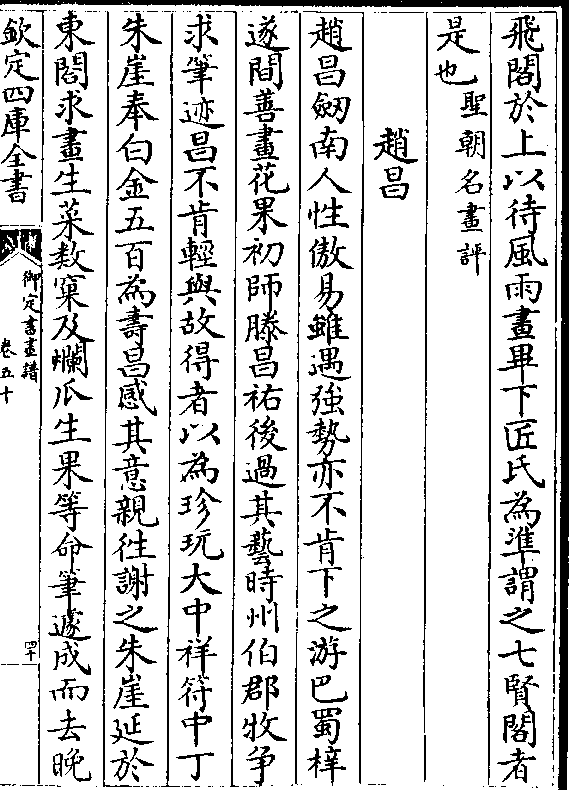 飛閣於上以待風雨畫畢下匠氏為準謂之七賢閣者
是也聖朝名畫評
趙昌
趙昌劒南人性傲易雖遇強勢亦不肯下之游巴蜀梓
遂間善畫花果初師滕昌祐後過其藝時州伯郡牧争
求筆迹昌不肯輕與故得者以為珍玩大中祥符中丁
朱崖奉白金五百為壽昌感其意親往謝之朱崖延於
東閣求畫生菜數窠及爛瓜生果等命筆遽成而去晚
欽定四庫全書
御定書畫譜
卷五十
四十